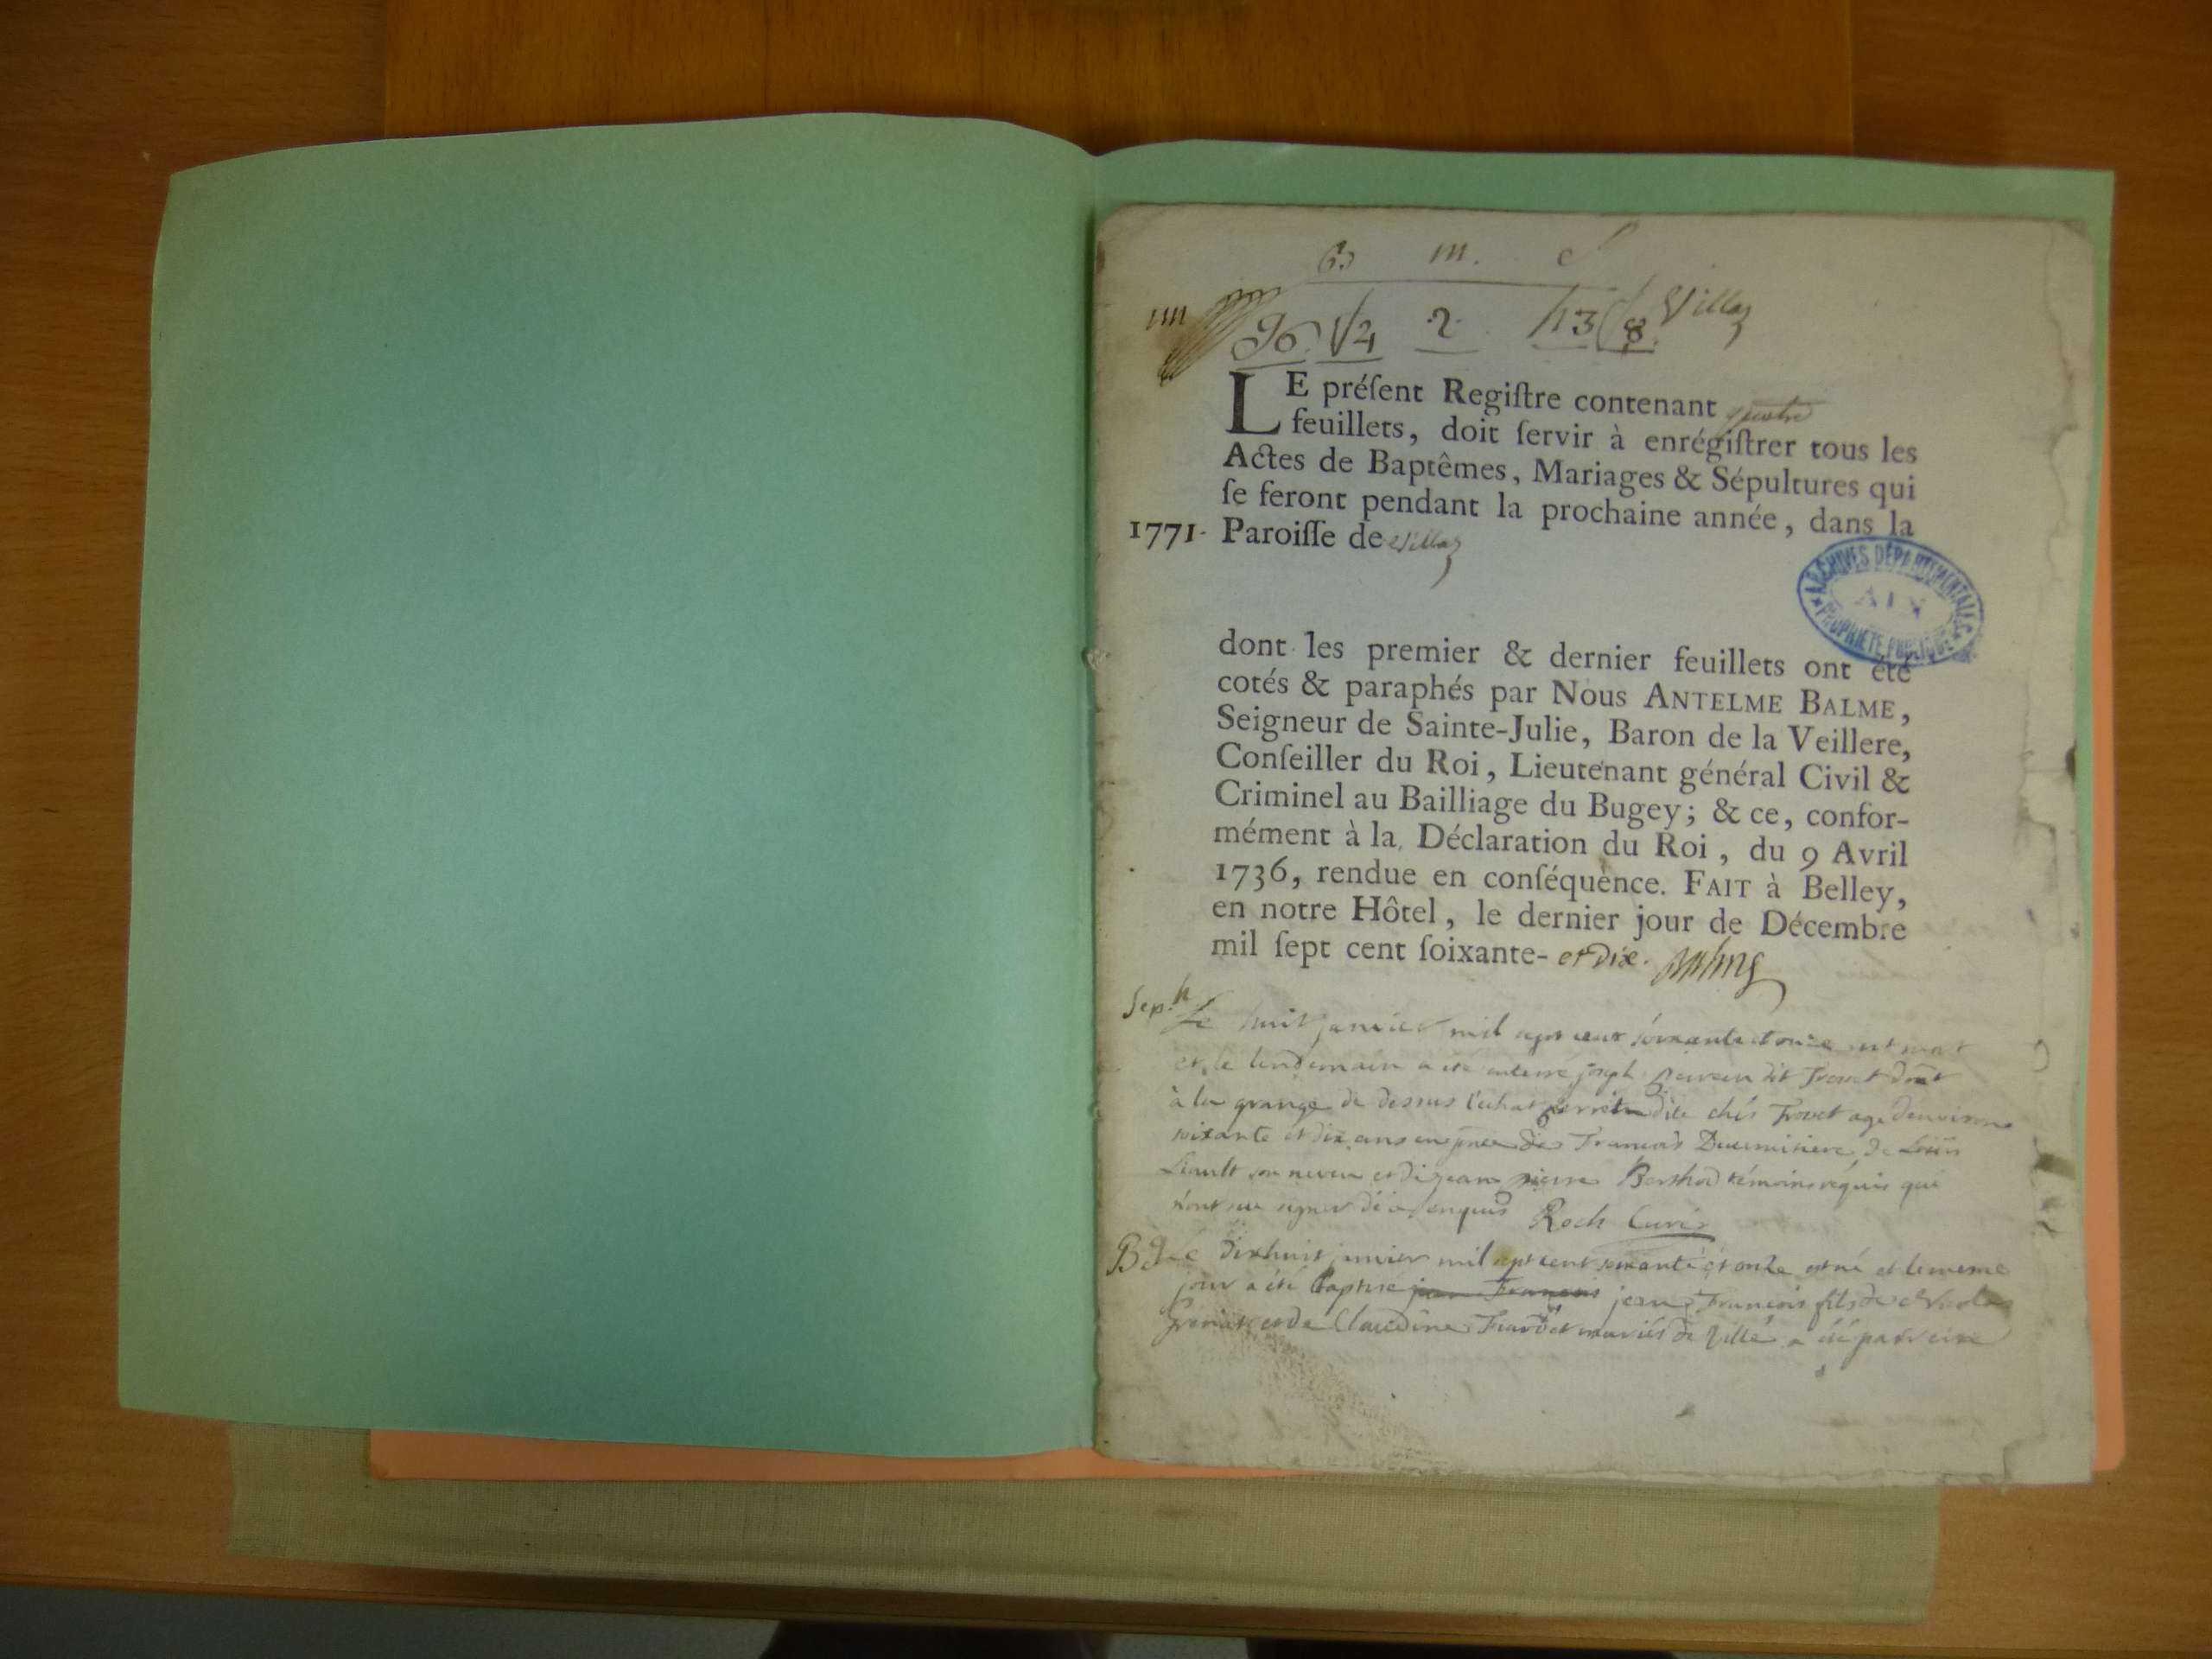 B m. S
96 14 2 13 8 Villaz
LE préſent Regiſtre contenant quatre
feuillets, doit ſervir à enrégiſtrer tous les
Actes de Baptêmes, Mariages & Sépultures qui
ſe feront pendant la prochaine année, dans la
1771. Paroiſſe de Villaz
ARCHIVES DÉPARTEMENTALES
AIN
PROPRIÉTÉ PUBLIQUE
dont les premier & dernier feuillets ont été
cotés & paraphés par Nous ANTELME BALME,
Seigneur de Sainte-Julie, Baron de la Veillere,
Conſeiller du Roi, Lieutenant général Civil &
Criminel au Bailliage du Bugey; & ce, confor-
mément à la Déclaration du Roi, du 9 Avril
1736, rendue en conſéquence. FAIT à Belley,
en notre Hôtel, le dernier jour de Décembre
mil ſept cent ſoixante- et dix.
Sep.h Le huit janvier mil sept cent soixante et onze est mort
et le lendemain a été enterré joseph dit Trouet
à la grange de dessus dite chés Trouet agé d'environ
soixante et dix ans en François de Loüis
son neveu et de jean pierre Berthod témoins réquis qui
n'ont su signer de ce enquis Roch Curé
B Le dixhuit janvier mil sept cent soixante et onze est né et le meme
jour a été Baptisé jean François jean François fils de
et de Claudine mariés de Villé a été parreine